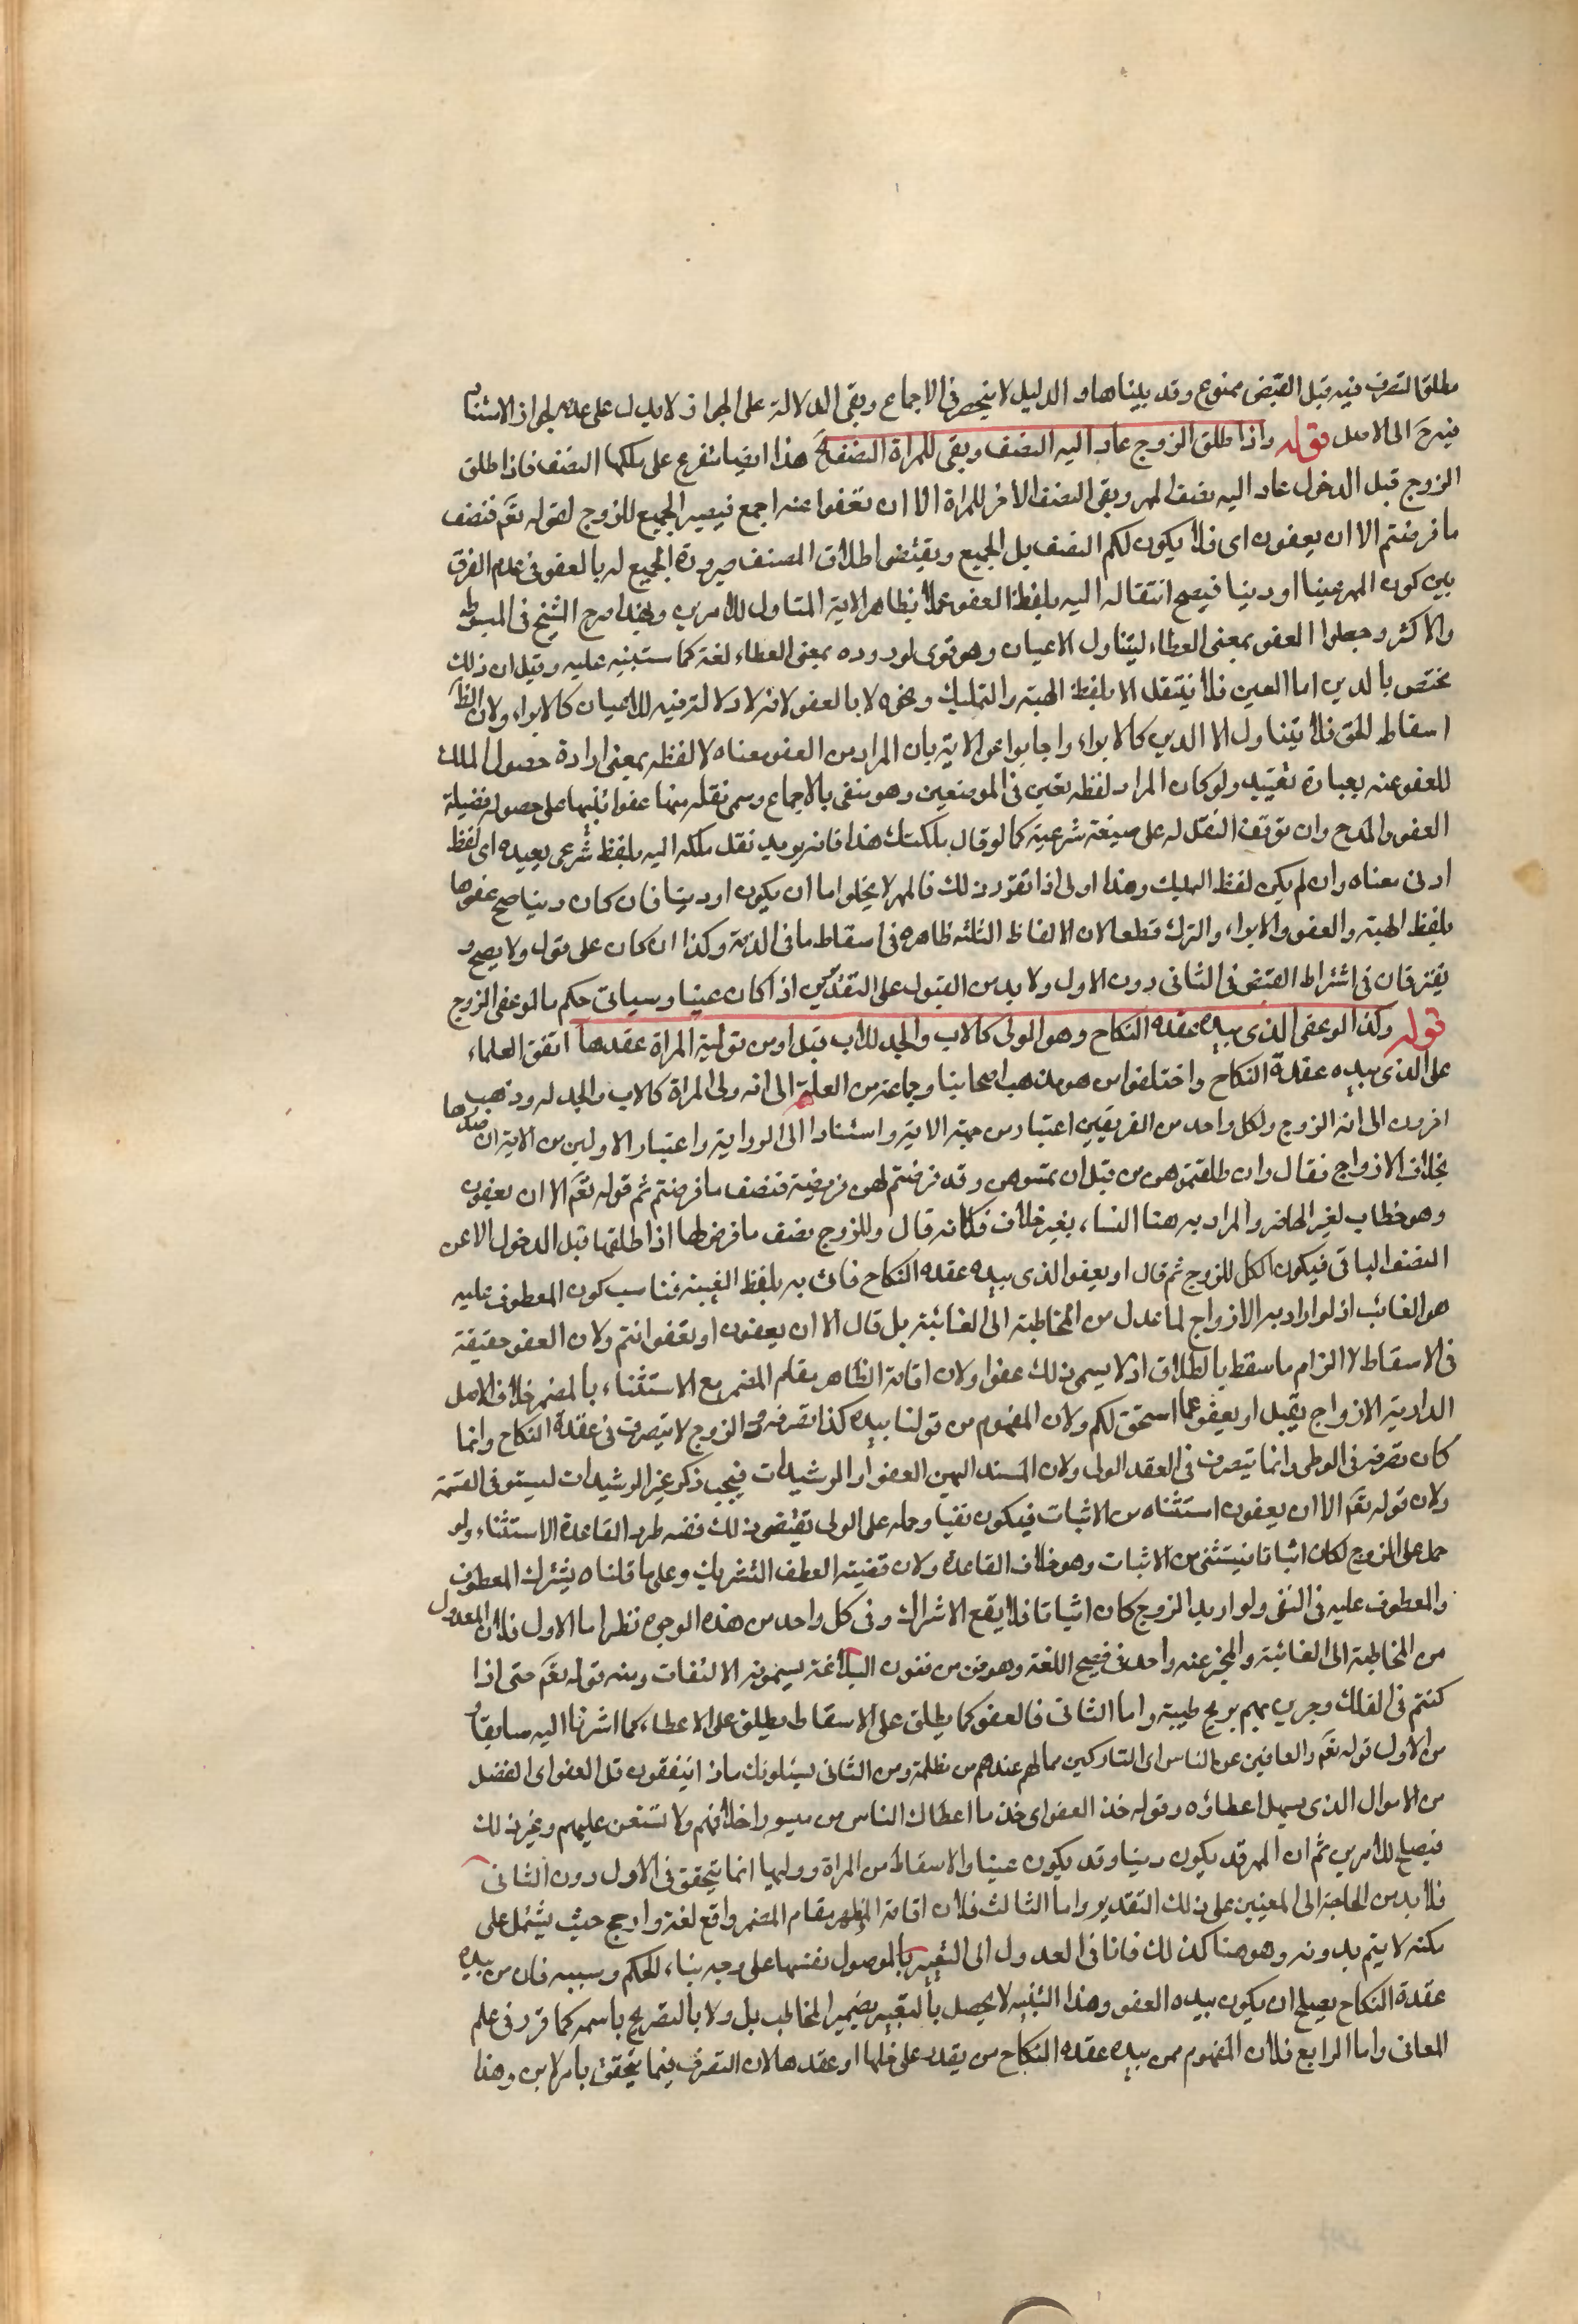 مطلق التصرف فيه قبل القبض ممنوع وقد بيناها والدليل لا ينحصر في الاجماع وبقي الدلالة على الجواز لا يدل على عدم الجواز لاستناده
فيرجع الى الاصل قوله واذا طلق الزوج عاد اليه النصف وبقي للمراة النصف الخ هذا ايضا متفرع على ملكها النصف فاذا طلق
الزوج قبل الدخول عاد اليه نصف المهر وبقى النصف الاخر للمراة الا ان تعفوا عنه اجمع فيصير الجميع للزوج لقوله تعم فنصف
ما فرضتم الا ان يعفون اى فلا يكون لكم النصف بل الجميع ويقتضوا طلاق المصنف صيرورة الجميع له بالعفو في عدم الفرق
بين كون المهر عينا او دينا فيصح انتقاله اليه بلفظ العفو عملا بظاهر الاية المتناول للامرين وبهذا صرح الشيخ فى المبسوط
والاكثر وجعلوا العفو بمعنى العطاء ليتناول الاعيان وهو قوى لوروده بمعنى العطاء لغة كما ستنبه عليه وقيل ان ذلك
يختص بالدين اما العين فلا ينتقل الا بلفظ الهبة والتمليك ونحوه لا بالعفو لانه لا دلالة فيه للاعيان كالابراء ولان الظ
اسقاط الحق فلا يتناول الا الدين كالابراء واجابوا عن الاية بان المراد من العفو معناه لا لفظه بمعنى ارادة حصول الملك
للمعفو عنه بعبارة تفيد ولو كان المراد لفظه تعين فى الموضعين وهو منفى بالاجماع وسمى نقله منها عفوا تنبيها على حصوله فضيلة
العفو والمدح وان توقف النقل له على صيغة شرعية كما لو قال ملكتك هذا فانه يريد نقل ملكه اليه بلفظ شرعى يفيده اى لفظ
ادى معناه وان لم يكن لفظ التمليك وهذا اولى اذا تقرر ذلك فالمهر لا يخلوا اما ان يكون او دينا فان كان دينا صح عفوها
بلفظ الهبة والعفو والابراء والترك قطعا لان الالفاظ الثلثه ظاهره فى اسقاط ما فى الذمة وكذا ان كان على قول ولا يصح و
يفترقان فى اشتراط القبض فى الثانى دون الاول ولا بد من القبول على التقديرين اذا كان عينا وسياتى حكم ما لو عفى الزوج
قوله وكذا لو عفى الذى بيده عقدة النكاح وهو المولى كالاب والجد للاب قبل او من توليه المراة عقدها اتفق العلماء
على الذى بيده عقدة النكاح واختلفوا من هو مذهب اصحابنا وجماعة من العامة الى انه ولى المراة كالاب والجد له وذهب
اخرون الى انه الزوج ولكل واحد من الفريقين اعتبار من جهة الاية واستنادا الى الرواية واعتبار الاولين من الاية ان صدرها
بخلاف الازواج فقال وان طلقتموهن من قبل ان تمسوهن وقد فرضتم لهن فريضة فنصف ما فرضتم ثم قوله تعم الا ان يعفون
وهو خطاب لغير الحاضر والمراد به هنا النساء بغير خلاف فكانه قال وللزوج نصف ما فرض لها اذا طلقها قبل الدخول الا عن
النصف الباقى فيكون الكل للزوج ثم قال او يعفوا الذى بيده عقدة النكاح فاتى به بلفظ الغيبة فناسب كون المعطوف عليه
هو الغائب اذ لو اراد به الازواج لما عدل من المخاطبة الى الغائبة بل قال الا ان يعفون او تعفوا انتم ولان العفو حقيقة
فى الاسقاط لا الزام ما سقط بالطلاق اذ لا يسمى ذلك عفوا ولان اقامة الظاهر مقام المضمر مع الاستثناء بالمضمر خلاف الاصل
الدارية الازواج يقبل او يعفو عما استحق لكم ولان المفهوم من قولنا بيده كذا تصرفه و الزوج لا يتصرف فى عقدة النكاح وانما
كان تصرفه فى الوطى وانما يتصرف فى العقد الولى ولان المسند اليهن العفو اولا الرشيدات فيجب ذكر غير الرشيدات ليستوفى القسمة
ولان قوله تعم الا ان يعفون استثناه من الاثبات فيكون نفيا وحمله على الولى يقتضى ذلك فضه طرد القاعدة الاستثناء ولو
حمل على الزوج لكان اثباتا فيستثنى من الاثبات وهو خلاف القاعدة ولان قضية العطف التشريك وعلى ما قلناه يشترك المعطوف
والمعطوف عليه فى النفى ولو اريد الزوج كان اثباتا فلا يقع الاشراك وفى كل واحد من هذه الوجوه نظر اما الاول فلان المعدول
من المخاطبة الى الغائبة والمخبر عنه واحد فى فصيح اللغة وهو فن من فنون البلاغة يسمونه الالتفات ومنه قوله تعم حتى اذا
كنتم فى الفلك وجرين بهم بريح طيبة واما الثانى فالعفو كما يطلق على الاسقاط يطلق على الاعطاء كما اشرنا اليه سابقا و
من الاول قوله تعم والعافين عن الناس اى التاركين مما لهم عندهم من مظلمة ومن الثانى يسئلونك ماذا ينفقون قل العفو اى الفضل
من الاموال الذى يسهل اعطاؤه وقوله خذ العفو اى خذ ما اعطاك الناس من ميسور اخلاقهم ولا تستقص عليهم وغير ذلك
فيصلح للامرين ثم ان المهر قد يكون دينا وقد يكون عينا والاسقاط من المراة ووليها انما يتحقق فى الاول دون الثانى
فلا بد من الحاجة الى المعنيين على ذلك التقدير واما الثالث فلان اقامة المظهر مقام المضمر واقع لغة وارجح حيث يشتمل على
نكتة لا يتم بدونه وهو هنا كذلك فانا فى العدول الى التعبير بالموصول نفسها على وجه بناء الحكم وسببه فان من بيده
عقدة النكاح يصلح ان يكون بيده العفو وهذا التنبيه لا يحصل بالتعبير بضمير المخاطب بل ولا بالتصريح باسمه كما قرر فى علم
المعانى واما الرابع فلان المفهوم ممن بيده عقدة النكاح من يقدر على حلها او عقدها لان التصرف فيما يتحقق بامرلابن وهذا